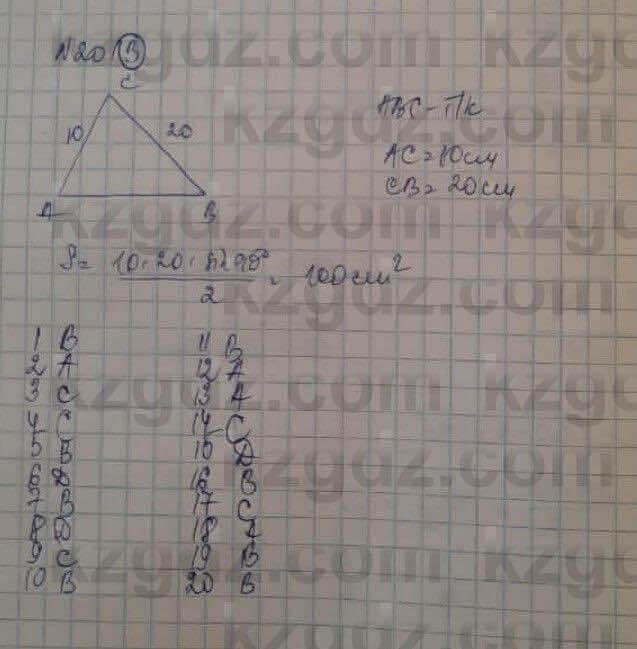 N20 B
C
10
20
A
B
ABC - П/к
AC = 10см
CB = 20см
S = 10·20·sin90° / 2 = 100см²
1 B
2 A
3 C
4 C
5 B
6 D
7 B
8 D
9 C
10 B
11 B
12 A
13 A
14 C
15 D
16 B
17 C
18 A
19 B
20 B
kzgdz.com